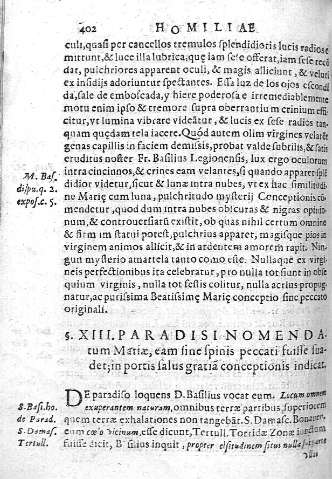 402 HOMILIAE
cuit, quasi per cancellos tremulos splendidioris lucis radios e
mittunt, & luce illa lubrica, quę iam sese offerat, iam sese recō
dat, pulchriores apparent oculi, & magis alliciunt, & veluti
ex insidijs adoriuntur spectantes. Essa luz de los ojos escondi
da, sale de emboscada, y hiere poderosa e irremediablemente
motu enim ipso & tremore supra oberrantiū crinium effi-
citur, vt lumina vibrare videātur, & lucis ex sese radios tan-
quam quędam tela iacere. Quòd autem olim virgines velarēt
genas capillis in faciem demissis, probat valde subtilis, & satis
eruditus noster Fr. Basilius Legionensis, lux ergo oculorum
M. Bas.
intra cincinnos, & crines eam velantes, si quando apparet splē
dispu. q. 2.
didior videtur, sicut & lunæ intra nubes, vt ex hac similitudi
expos. c. 5.
ne Marię cum luna, pulchritudo mysterij Conceptionis cō
mendetur, quod dum intra nubes obscuras & nigras opinio
num, & controuersiarū exstit, ob quas nihil certum omnino
& firmū in statui potest, pulchrius apparet, magisque pios in
virginem animos allicit, & in ardentem amorem rapit. Nin-
gun mysterio amartela tanto como este. Nullaque ex virgi-
neis perfectionibus ita celebratur, pro nulla tot sunt in obse
quium virginis, nulla tot festis colitur, nulla acrius propug-
natur, ac purissima Beatissimę Marię conceptio sine peccato
originali.
§. XIII. PARADISI NOMENDA-
tum Mariæ, eam sine spinis peccati fuisse sua-
det; in portis salus gratiā conceptionis indicat.
DE paradiso loquens D. Basilius vocat eum. Locum omnem
S. Basi. ho.
exuperantem naturam, omnibus terræ partibus, superiorem
de Parad.
quem terræ exhalationes non tangebāt. S. Damasc. Bonauen.
S. Damas.
eum cœlo vicinum, esse dicunt, Tertull. Torridæ Zonæ iandum
Tertull.
fuisse dicit, Basilius inquit, propter